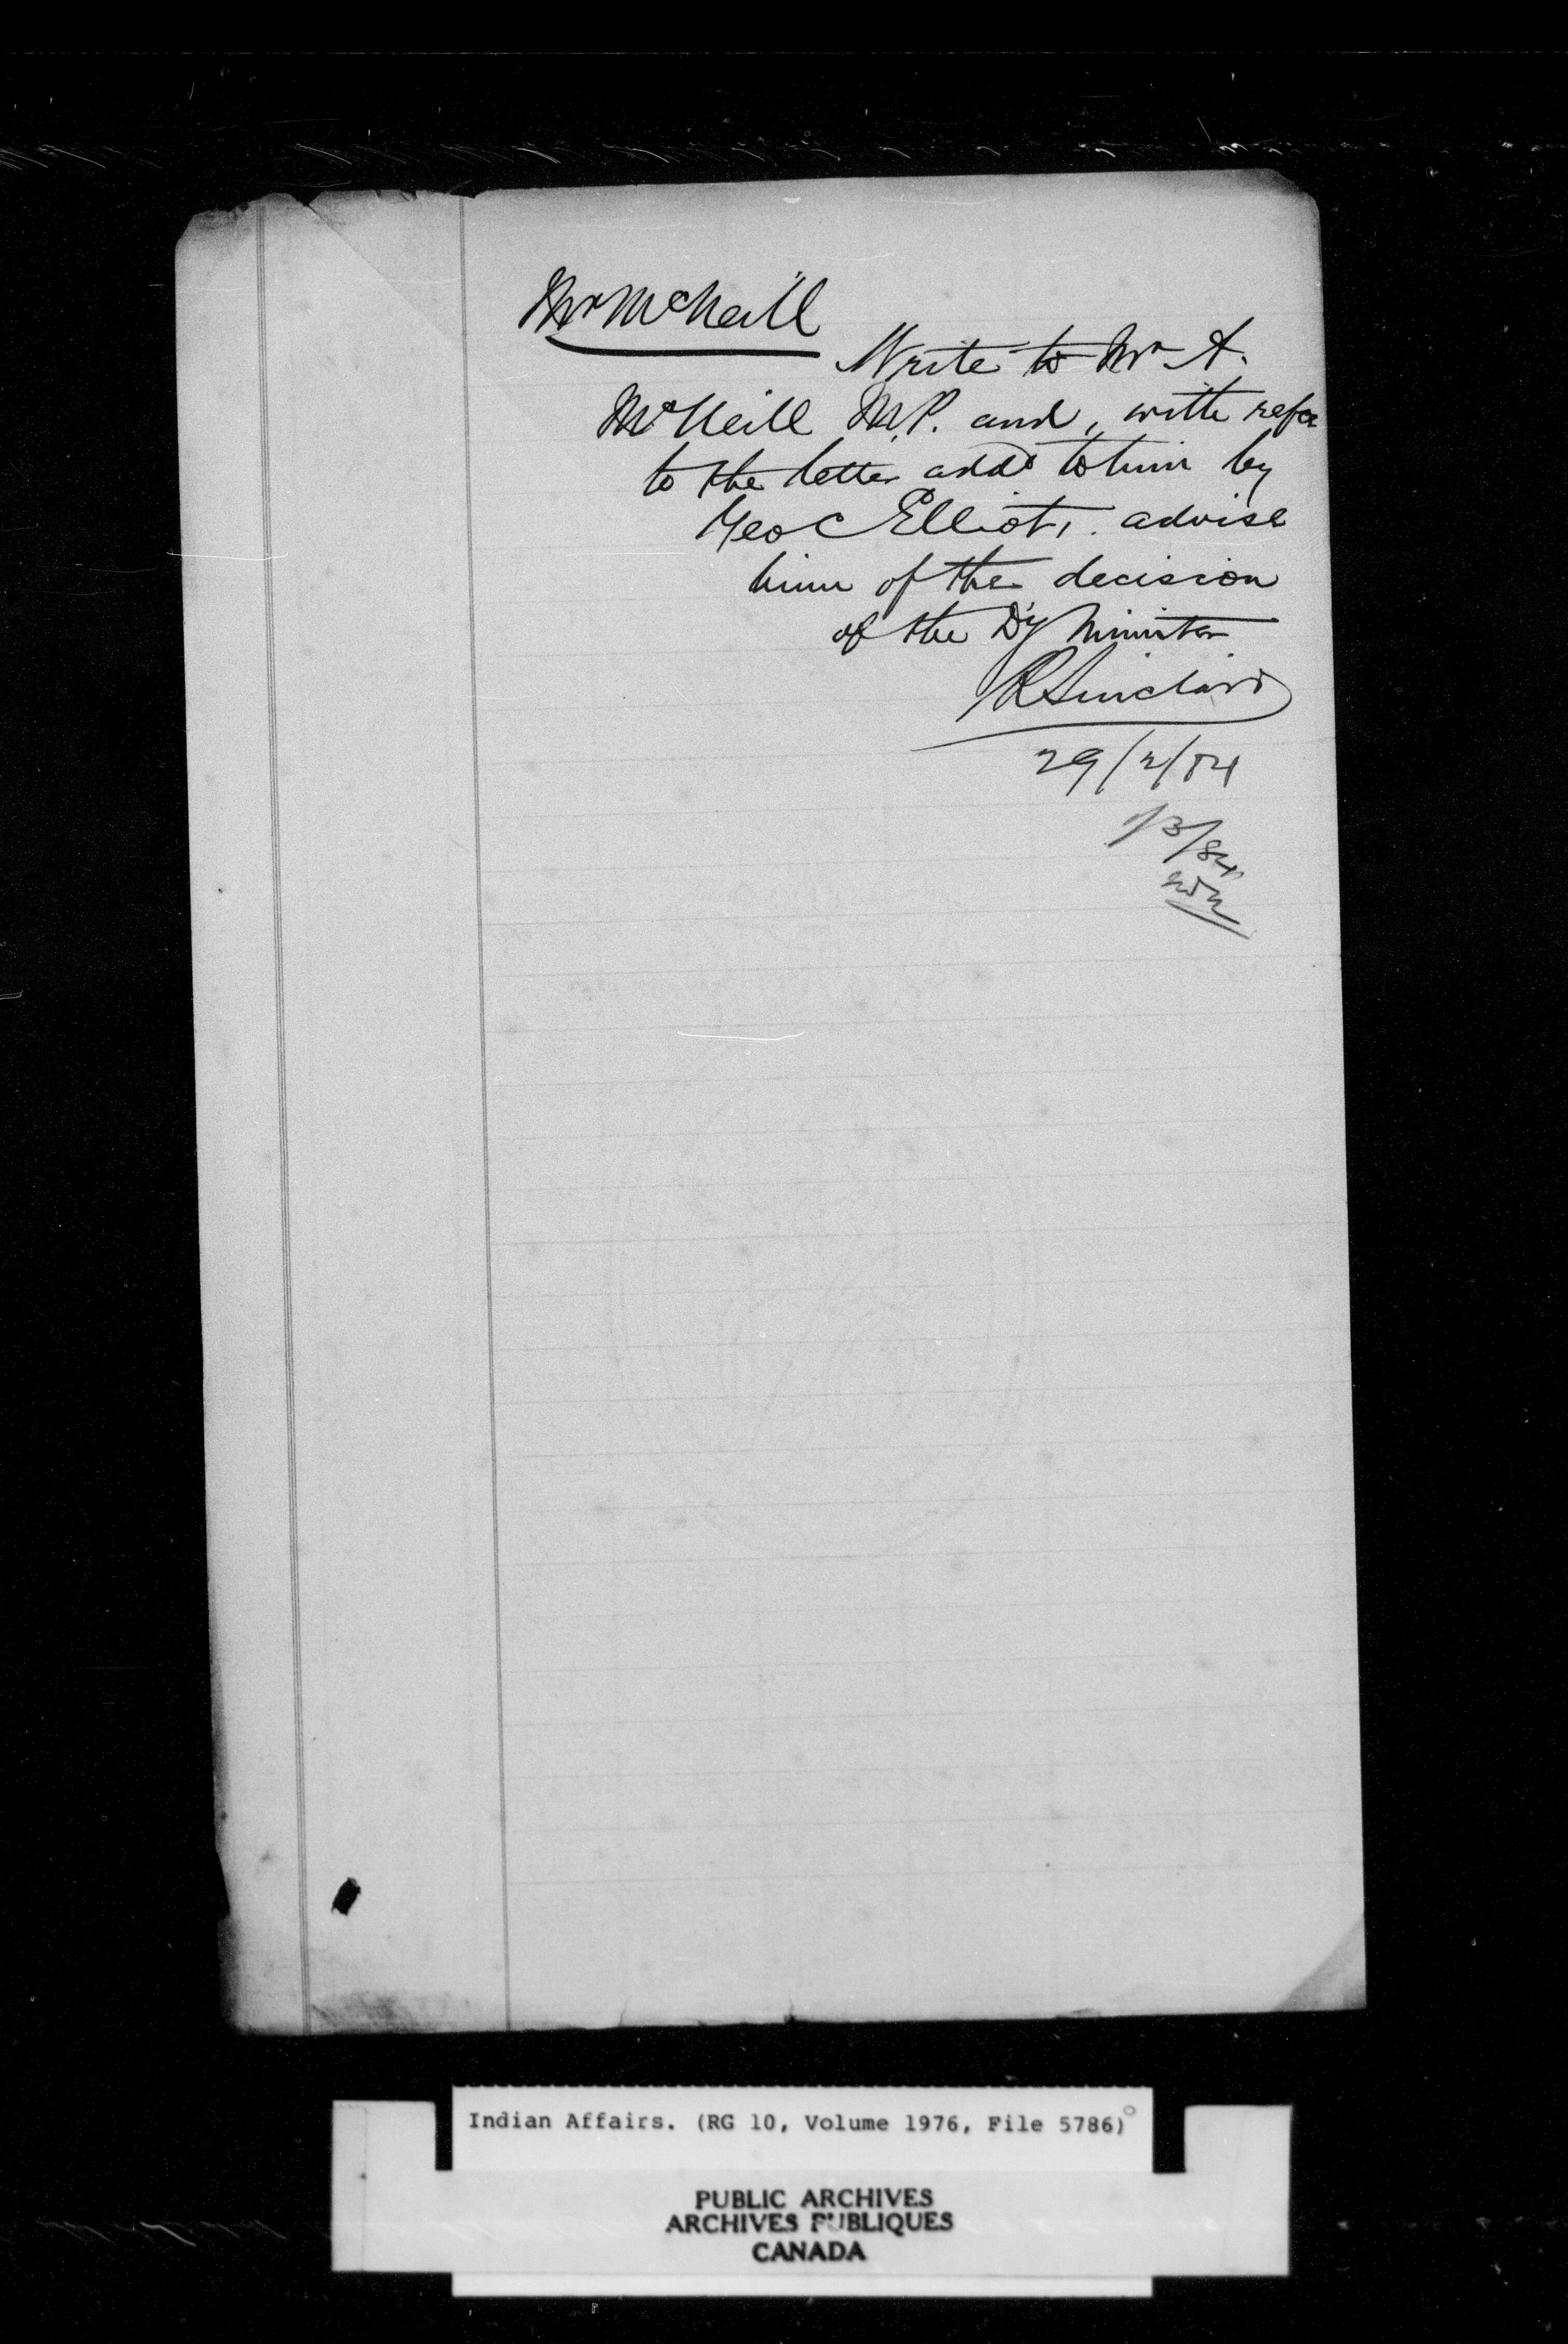 Mr McNeill
Write to Mr A.
McNeill M.P. and, with refce
to the letter addd to him by
Geo C Elliot, advise
him of the decision
of the Dy Minister
R Sinclair
29/2/84
1/3/84
Indian Affairs. (RG 10, Volume 1976, File 5786)
PUBLIC ARCHIVES
ARCHIVES PUBLIQUES
CANADA